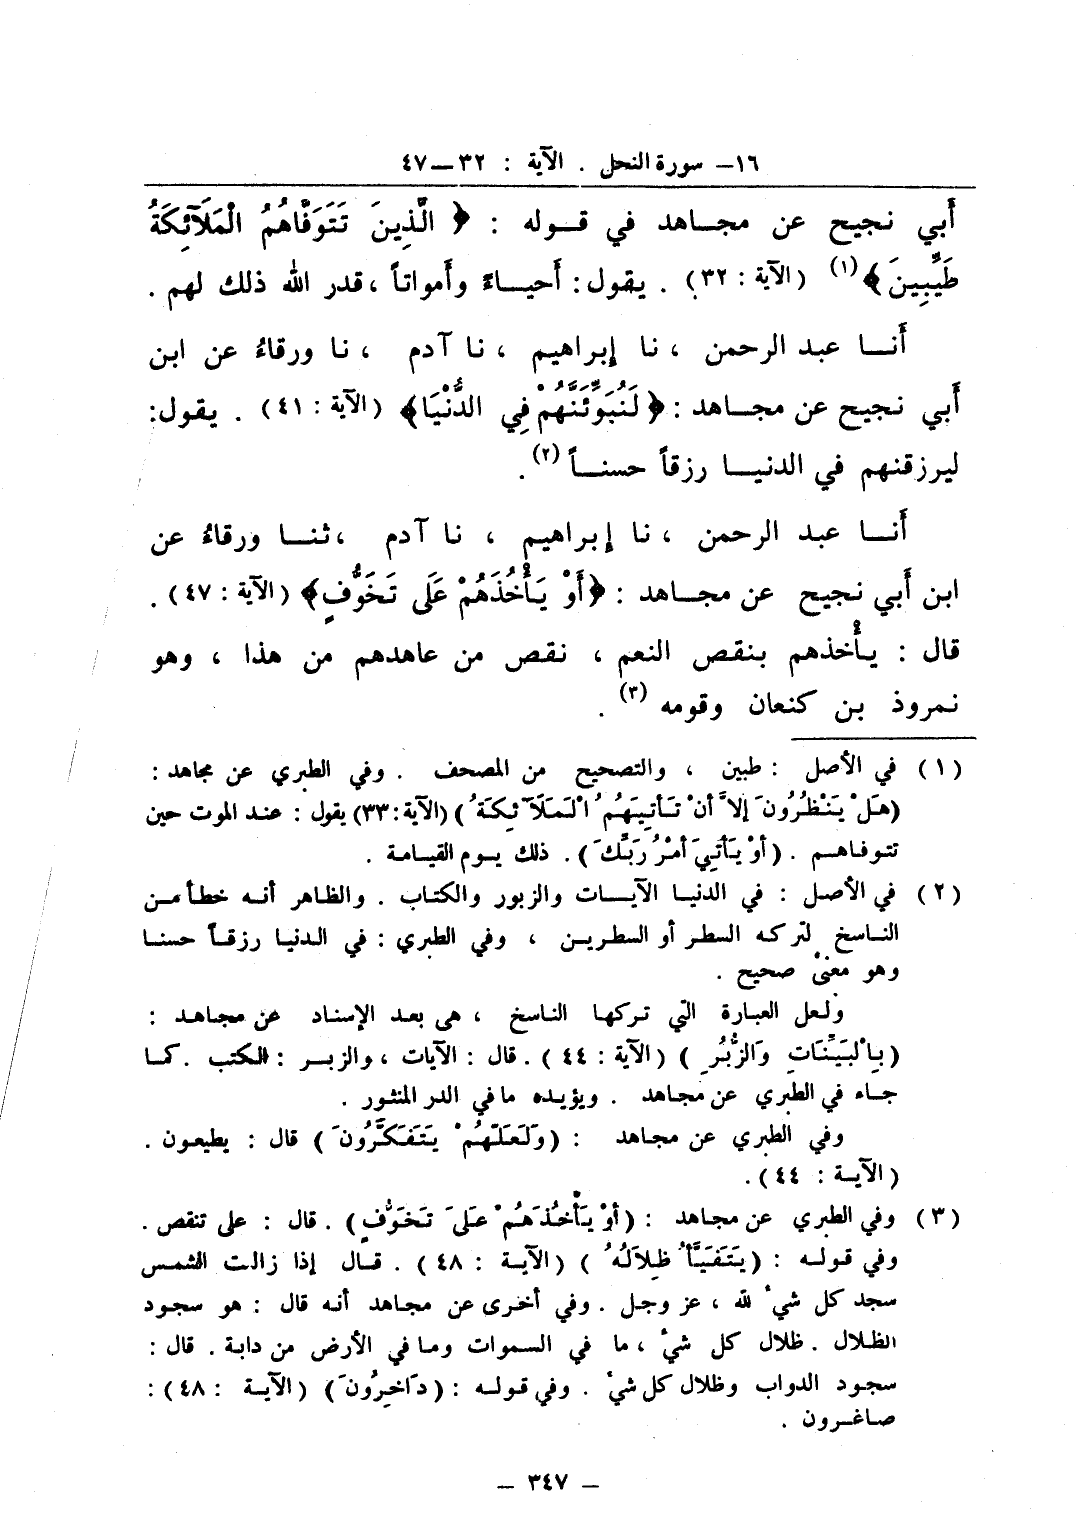 ١٦– سورة النحل . الآية : ٣٢–٤٧
أَبي نجيح عن مجاهد في قوله : ﴿ الَّذِينَ تَتَوَفَّاهُمُ الْمَلَآئِكَةُ
طَيِّبِينَ﴾(١) (الآية : ٣٢) . يقول: أَحياءً وأَمواتاً ، قدر الله ذلك لهم .
أَنا عبد الرحمن ، نا إبراهيم ، نا آدم ، نا ورقاءُ عن ابن
أَبي نجيح عن مجاهد : ﴿ لَنُبَوِّئَنَّهُمْ فِي الدُّنْيَا﴾ (الآية : ٤١) . يقول:
ليرزقنهم في الدنيا رزقاً حسناً (٢) .
أَنا عبد الرحمن ، نا إبراهيم ، نا آدم ، ثنا ورقاءُ عن
ابن أَبي نجيح عن مجاهد : ﴿أَوْ يَأْخُذَهُمْ عَلَى تَخَوُّفٍ﴾ (الآية : ٤٧) .
قال : يأْخذهم بنقص النعم ، نقص من عاهدهم من هذا ، وهو
نمروذ بن كنعان وقومه (٣) .
(١) في الأصل : طبين ، والتصحيح من المصحف . وفي الطبري عن مجاهد :
(هَلْ يَنْظُرُونَ إلاَّ أنْ تَأتِيَهُمُ الْمَلَآئِكَةُ) (الآية:٣٣) يقول : عند الموت حين
تتوفاهم . (أوْ يَأتِيَ أمْرُ رَبِّكَ) . ذلك يوم القيامة .
(٢) في الأصل : في الدنيا الآيات والزبور والكتاب . والظاهر أنه خطأ من
الناسخ لتركه السطر أو السطرين ، وفي الطبري : في الدنيا رزقاً حسنا
وهو معنىً صحيح .
ولعل العبارة التي تركها الناسخ ، هى بعد الإسناد عن مجاهد :
(بِالْبَيِّنَاتِ وَالزُّبُرِ ) (الآية : ٤٤) . قال : الآيات ، والزبر : الكتب . كما
جاء في الطبري عن مجاهد . ويؤيده ما في الدر المنثور .
وفي الطبري عن مجاهد : (وَلَعَلَّهُمْ يَتَفَكَّرُونَ) قال : يطيعون .
(الآية : ٤٤) .
(٣) وفي الطبري عن مجاهد : (أوْ يَأْخُذَهُمْ عَلَى تَخَوُّفٍ) . قال : على تنقص .
وفي قوله : (يَتَفَيَّأُ ظِلاَلُهُ ) (الآية : ٤٨) . قال إذا زالت الشمس
سجد كل شيءٌ لله ، عز وجل . وفي أخرى عن مجاهد أنه قال : هو سجود
الظلال . ظلال كل شيء ، ما في السموات وما في الأرض من دابة . قال :
سجود الدواب وظلال كل شيء . وفي قوله : (دَاخِرُونَ) (الآية : ٤٨) :
صاغرون .
– ٣٤٧ –